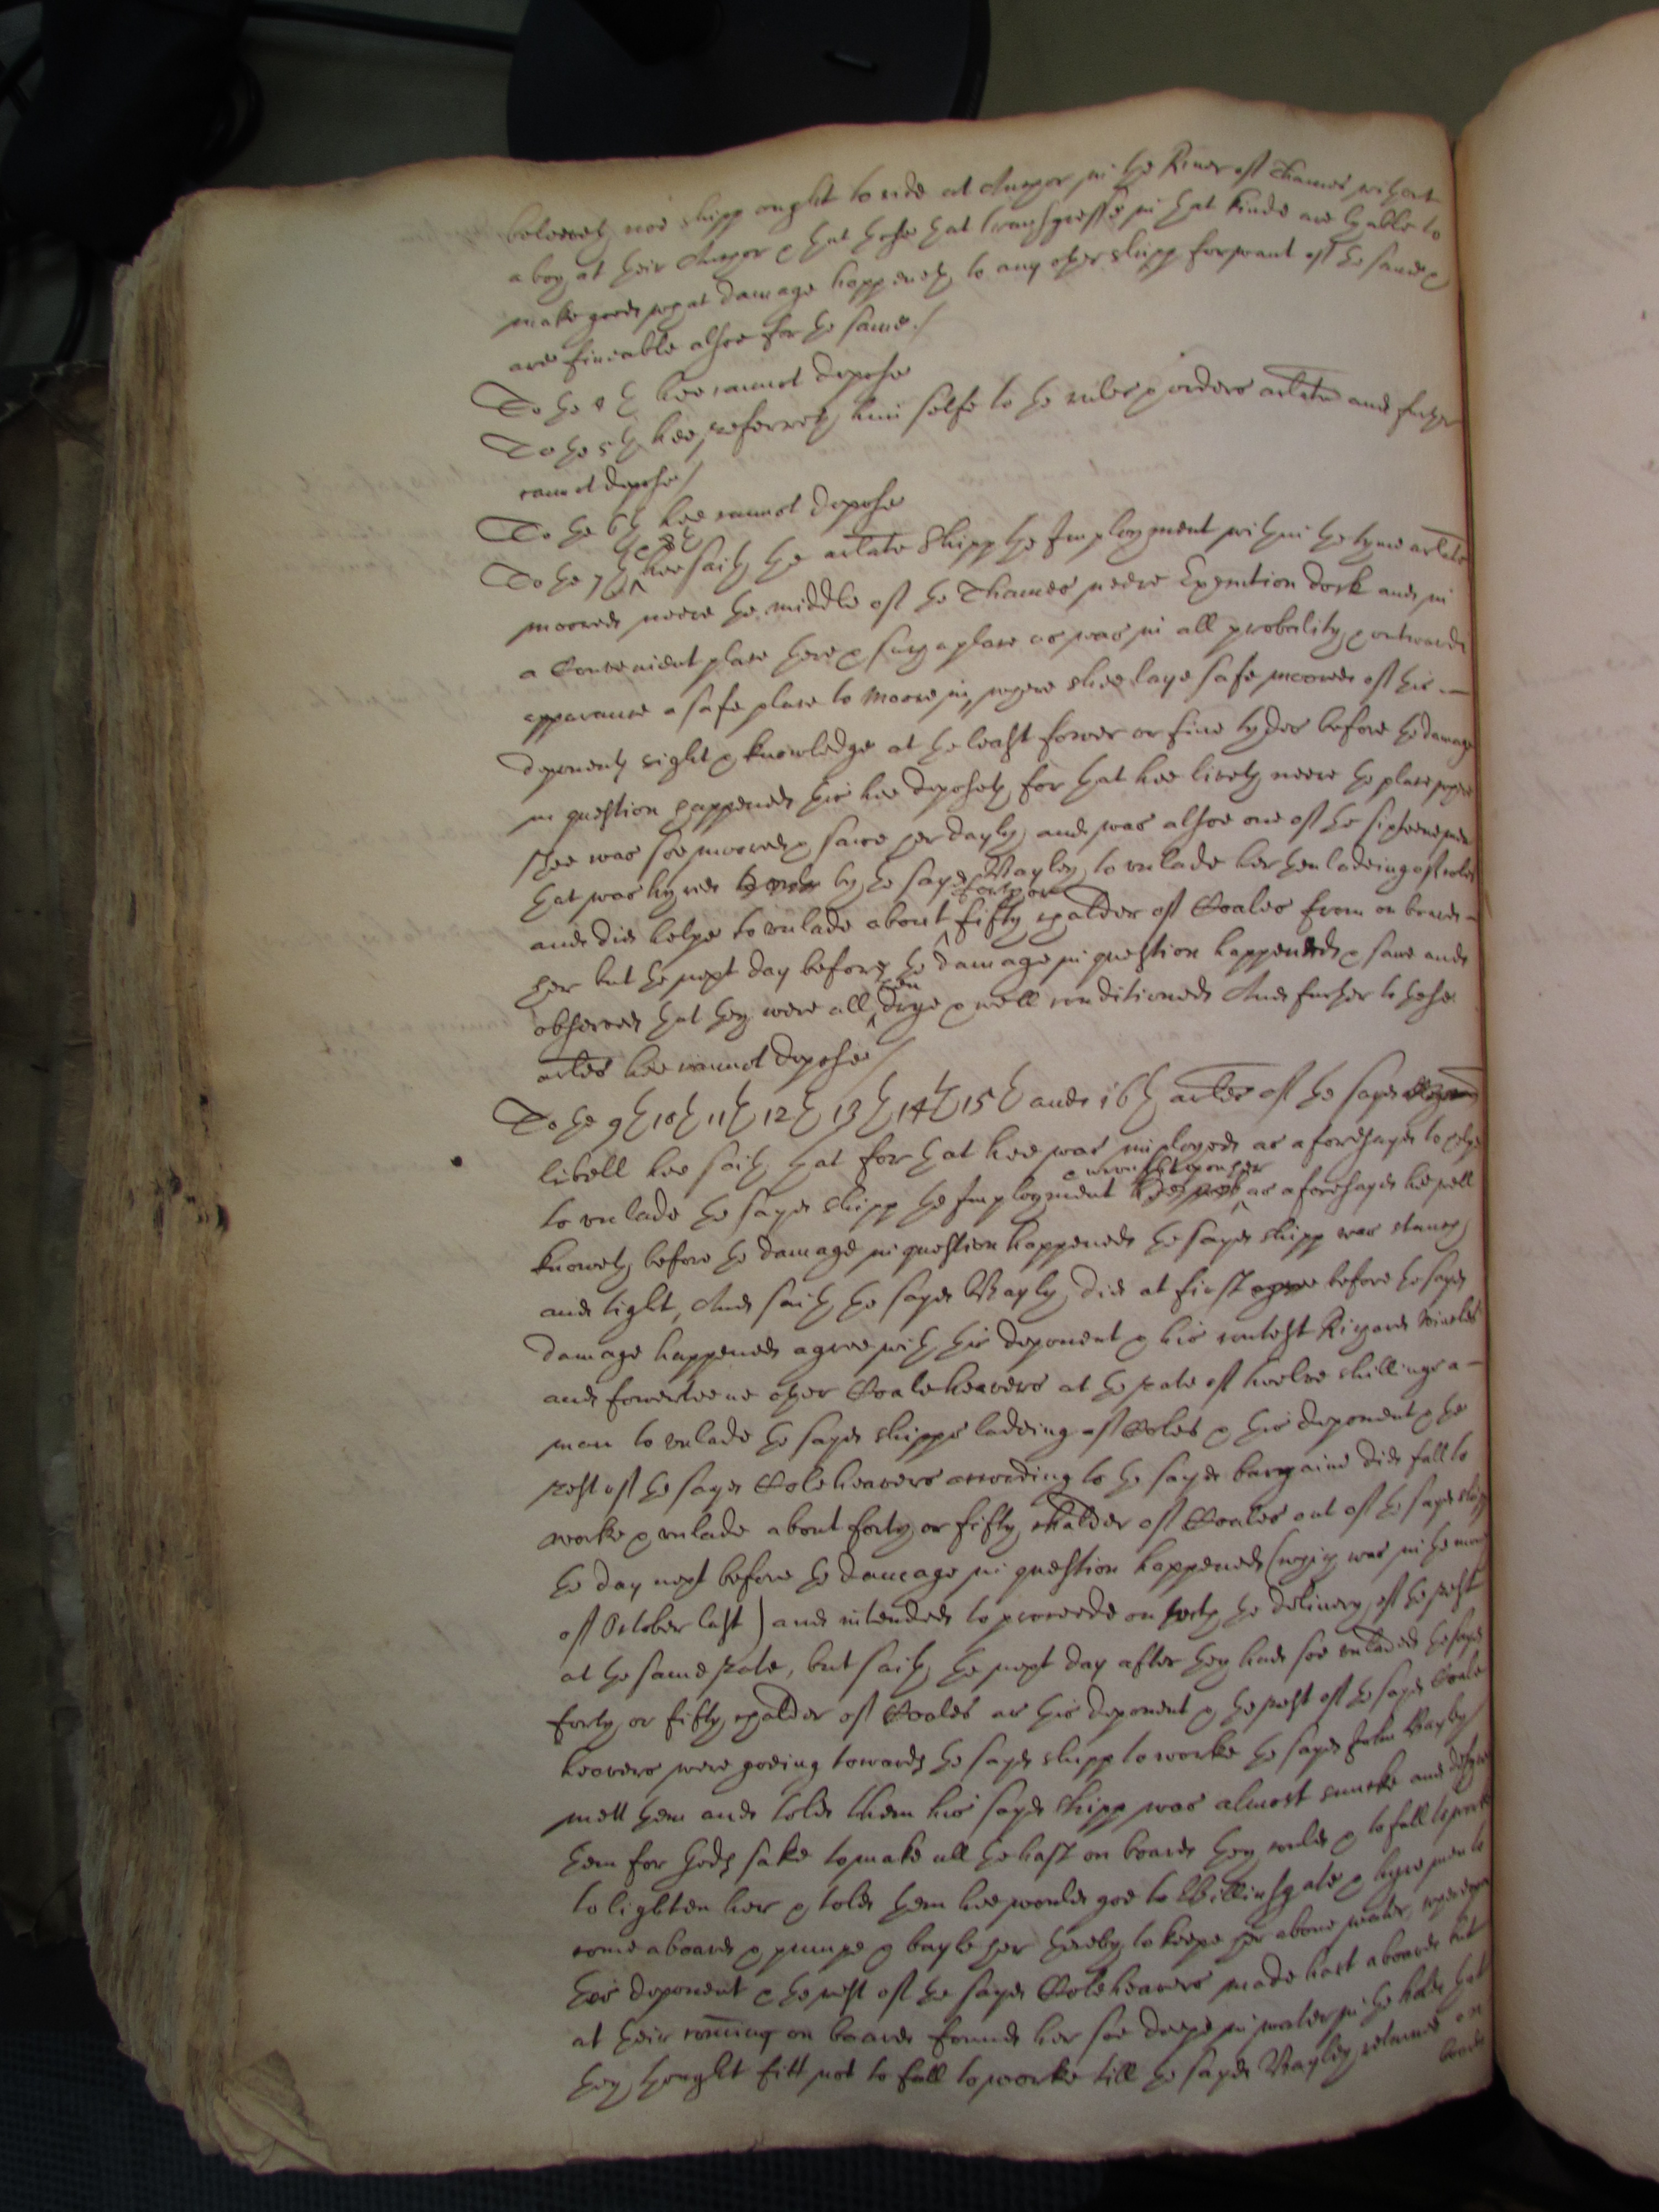 beleeveth noe shipp ought to ride at Anchor in the River of Thames without
a boy at their Anchor & that those that transgresse in that kinde are lyable to
make good what damage happeneth to any other shipp for want of the same &
are fineable alsoe for the same./
To the 4th hee cannot depose
To the 5th hee referreth him selfe to the rules & orders arlate and further
cannot depose/
To the 6th hee cannot depose
To the 7th & 8th hee saith the arlate Shipp the Imployment within the tyme arlate
moored neere the middle of the Thames neere Execution dock and in
a Convenient place there & such a place as was in all probality & outwarde
apparance a safe place to Moore in, where shee laye safe moored of his
deponents sight & knowledge at the least fower or five tydes before the damage
in question happened this hee deposeth for that hee liveth neere the place where
shee was soe moored & sawe her dayly and was alsoe one of the sixteene men
that was hyred by the sayd Bayley to unlade her then ladeing of coles
and did helpe to unlade about forty or fifty chalder of Coales from on board
her but the next day before the damage in question happened & sawe and
observed that they were all then drye & well conditioned And further to these
arles hee cannot depose/
To the 9th 10th 11th 12th 13th 14th 15th and 16th arles of the sayd
libell hee saith that for that hee was imployed as aforesayd to helpe
to unlade the sayd shipp the Imployment & wrought upon her as aforesayd hee well
knoweth before the damage in question happened the sayd shipp was stanch
and tight, And saith the sayd Bayly did at first agree before the sayd
damage happened agree with this deponent & his contest Richard
and fowerteene other Coaleheavers at the rate of twelve shillings a
man to unlade the sayd shipps ladeing of Coles & this deponent & the
rest of the sayd Coleheavers according to the sayd bargaine did fall to
worke & unlade about forty or fifty chalder of Coales out of the sayd shipp
the day next before the damage in question happened (which was in the moneth
of October last) and intended to proceede on with the delivery of the rest
at the same rate, but saith the next day after they had soe unladed the sayd
forty or fifty chalder of Coales as this deponent & the rest of the sayd Coale
heavers were goeing towards the sayd shipp to worke the sayd John Bayly
mett them and told them his sayd shipp was almost suncke and desyred
them for Gods sake to make all the hast on board they could & to fall to worke
to lighten her & told them hee would goe to Billinsgate & hyre men to
come aboard & pumpe & bayle her thereby to keepe her above water, whereupon
this deponent & the rest of the sayd Coleheavers made hast aboard but
at their coming on board found her soe deepe in water in the hold that
they thought fitt not to fall to worke till the sayd Bayley returned on
board